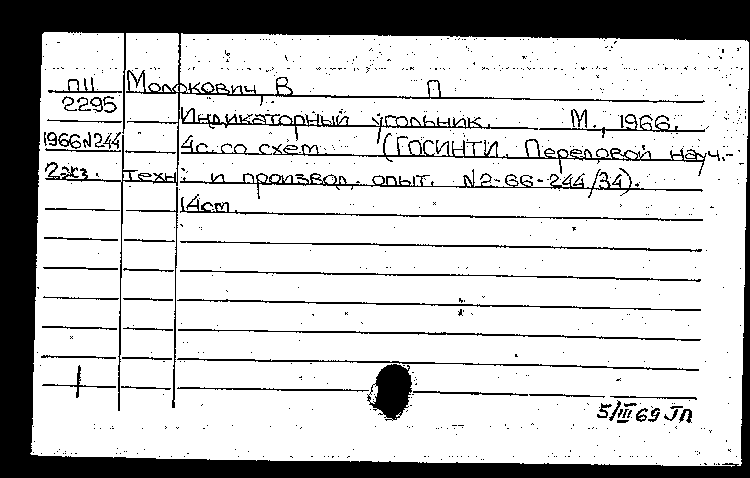 ПII Молокович, В П
2295
Индикаторный угольник. М., 1966.
1966№244 4с. со схем. (ГОСИНТИ. Передовой науч.-
2экз. техн. и производ. опыт. №2-66-244/34).
14см.
5/III 69 ЛП